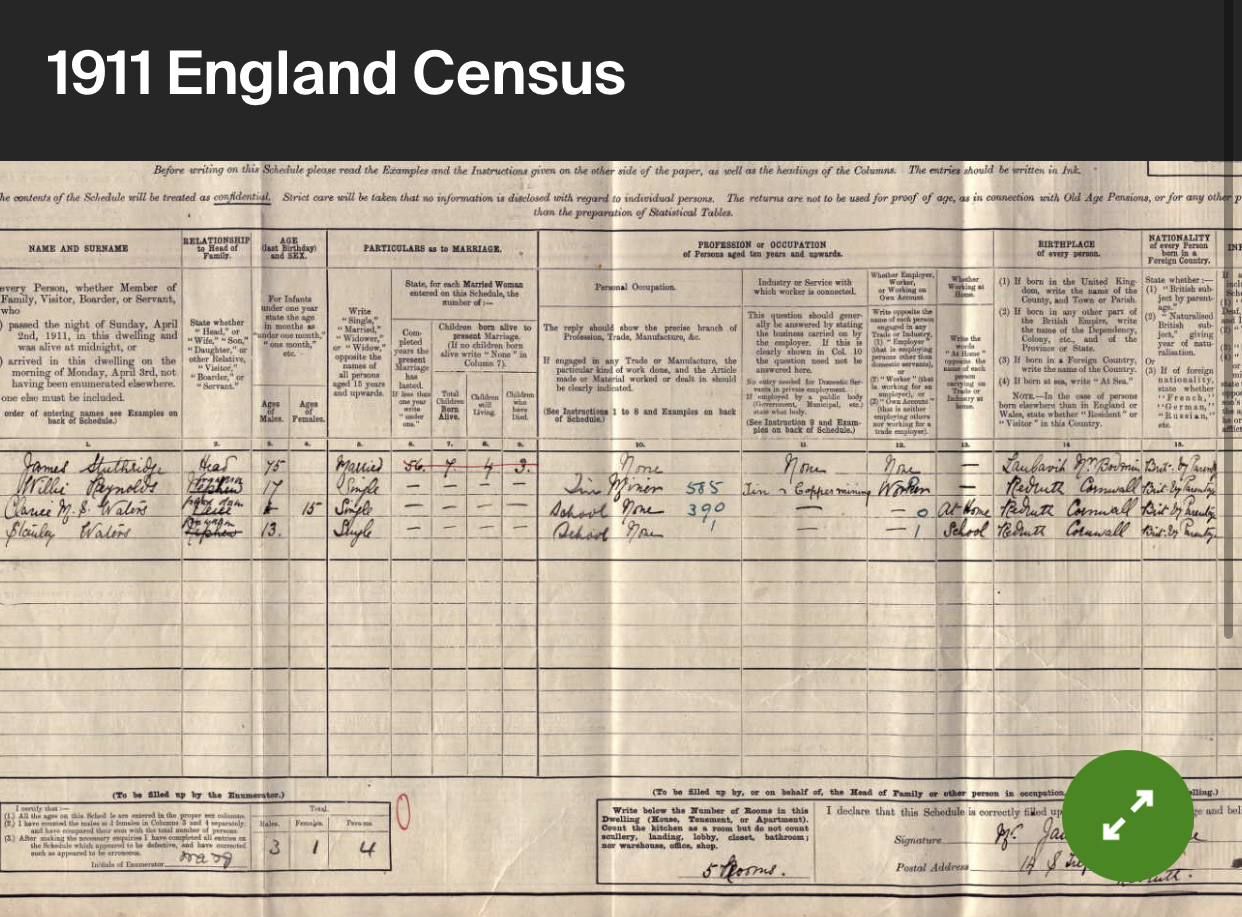 1911 England Census
Before writing on this Schedule please read the Examples and the Instructions given on the other side of the paper, as well as the headings of the Columns. The entries should be written in Ink.
he contents of the Schedule will be treated as confidential. Strict care will be taken that no information is disclosed with regard to individual persons. The returns are not to be used for proof of age, as in connection with Old Age Pensions, or for any other p
than the preparation of Statistical Tables.
NAME AND SURNAME
every Person, whether Member of
Family, Visitor, Boarder, or Servant,
who
) passed the night of Sunday, April
2nd, 1911, in this dwelling and
was alive at midnight, or
) arrived in this dwelling on the
morning of Monday, April 3rd, not
having been enumerated elsewhere.
one else must be included.
order of entering names see Examples on
back of Schedule.)
RELATIONSHIP
to Head of
Family.
State whether
"Head," or
"Wife," "Son,"
"Daughter," or
other Relative,
"Visitor,"
"Boarder," or
"Servant."
AGE
(last Birthday)
and SEX.
For Infants
under one year
state the age
in months as
"under one month,"
"one month,"
etc.
Ages
of
Males.
Ages
of
Females.
PARTICULARS as to MARRIAGE.
Write
"Single,"
"Married,"
"Widower,"
or "Widow,"
opposite the
names of
all persons
aged 15 years
and upwards.
State, for each Married Woman
entered on this Schedule, the
number of :—
Com-
pleted
years the
present
Marriage
has
lasted.
If less than
one year
write
"under
one."
Children born alive to
present Marriage.
(If no children born
alive write "None" in
Column 7).
Total
Children
Born
Alive.
Children
still
Living.
Children
who
have
Died.
PROFESSION or OCCUPATION
of Persons aged ten years and upwards.
Personal Occupation.
The reply should show the precise branch of
Profession, Trade, Manufacture, &c.
If engaged in any Trade or Manufacture, the
particular kind of work done, and the Article
made or Material worked or dealt in should
be clearly indicated.
(See Instructions 1 to 8 and Examples on back
of Schedule.)
Industry or Service with
which worker is connected.
This question should gener-
ally be answered by stating
the business carried on by
the employer. If this is
clearly shown in Col. 10
the question need not be
answered here.
No entry needed for Domestic Ser-
vants in private employment.
If employed by a public body
(Government, Municipal, etc.)
state what body.
(See Instruction 9 and Exam-
ples on back of Schedule.)
Whether Employer,
Worker,
or Working on
Own Account.
Write opposite the
name of each person
engaged in any
Trade or Industry,
(1) "Employer"
(that is employing
persons other than
domestic servants),
or
(2) "Worker" (that
is working for an
employer), or
(3) "Own Account"
(that is neither
employing others
nor working for a
trade employer).
Whether
Working at
Home.
Write the
words
"At Home"
opposite the
name of each
person
carrying on
Trade or
Industry at
home.
BIRTHPLACE
of every person.
(1) If born in the United King-
dom, write the name of the
County, and Town or Parish.
(2) If born in any other part of
the British Empire, write
the name of the Dependency,
Colony, etc., and of the
Province or State.
(3) If born in a Foreign Country,
write the name of the Country.
(4) If born at sea, write "At Sea."
NOTE.—In the case of persons
born elsewhere than in England or
Wales, state whether "Resident" or
"Visitor" in this Country.
NATIONALITY
of every Person
born in a
Foreign Country.
State whether :—
(1) "British sub-
ject by parent-
age."
(2) "Naturalised
British sub-
ject," giving
year of natu-
ralisation.
Or
(3) If of foreign
nationality,
state whether
"French,"
"German,"
"Russian,"
etc.
1. 2. 3. 4. 5. 6. 7. 8. 9. 10. 11. 12. 13. 14 15.
James Head 75 Married 56. 7. 4 3. None None None —
Willie Reynolds 17 Single — — — — Tin Miner 585 Tin & Copper mining Worker — Redruth Cornwall
M. S. Waters 15 Single — — — — School None 390 — — 0 At Home Redruth Cornwall
Stanley Waters 13. Single — — — — School None 1 — 1 School Redruth Cornwall
(To be filled up by the Enumerator.)
I certify that :—
(1.) All the ages on this Schedule are entered in the proper sex columns.
(2.) I have counted the males and females in Columns 3 and 4 separately,
and have compared their sum with the total number of persons.
(3.) After making the necessary enquiries I have completed all entries on
the Schedule which appeared to be defective, and have corrected
such as appeared to be erroneous.
Initials of Enumerator
Total.
Males. Females. Persons.
3 1 4
0
(To be filled up by, or on behalf of, the Head of Family or other person in occupation,
elling.)
Write below the Number of Rooms in this
Dwelling (House, Tenement, or Apartment).
Count the kitchen as a room but do not count
scullery, landing, lobby, closet, bathroom;
nor warehouse, office, shop.
5 Rooms.
I declare that this Schedule is correctly filled up
Signature
Postal Address